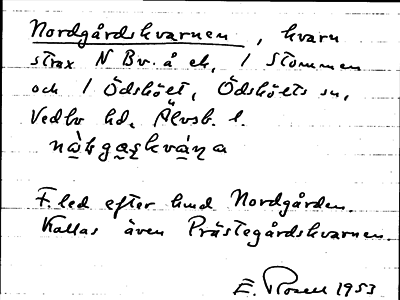 Nordgårdskvarnen, kvarn
strax N Bv. å ek. 1 Stommen
och 1 Ödskölt, Ödskölts sn,
Vedbo hd, Älvsb. l.
F. led efter hmd Nordgården.
Kallas även Prästegårdskvarnen.
E. Rosell 1953